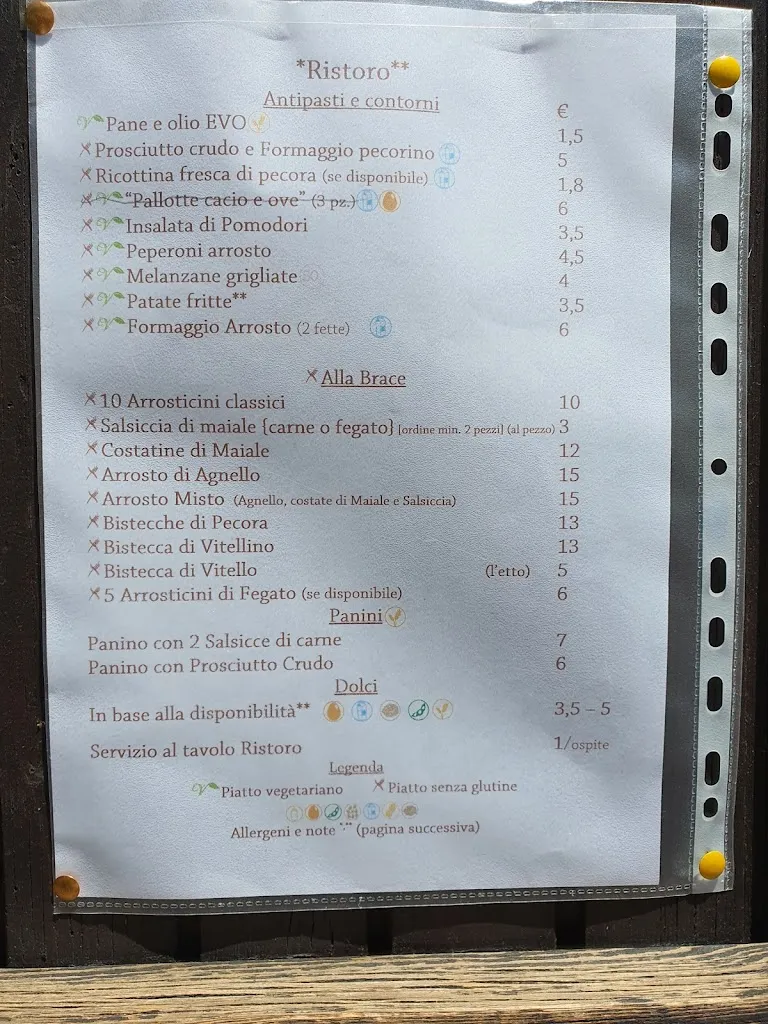 *Ristoro**
Antipasti e contorni €
Pane e olio EVO 1,5
Prosciutto crudo e Formaggio pecorino 5
Ricottina fresca di pecora (se disponibile) 1,8
"Pallotte cacio e ove" (3 pz.) 6
Insalata di Pomodori 3,5
Peperoni arrosto 4,5
Melanzane grigliate 4
Patate fritte** 3,5
Formaggio Arrosto (2 fette) 6
Alla Brace
10 Arrosticini classici 10
Salsiccia di maiale {carne o fegato} [ordine min. 2 pezzi] (al pezzo) 3
Costatine di Maiale 12
Arrosto di Agnello 15
Arrosto Misto (Agnello, costate di Maiale e Salsiccia) 15
Bistecche di Pecora 13
Bistecca di Vitellino 13
Bistecca di Vitello (l'etto) 5
5 Arrosticini di Fegato (se disponibile) 6
Panini
Panino con 2 Salsicce di carne 7
Panino con Prosciutto Crudo 6
Dolci
In base alla disponibilità** 3,5 – 5
Servizio al tavolo Ristoro 1/ospite
Legenda
Piatto vegetariano Piatto senza glutine
Allergeni e note (pagina successiva)